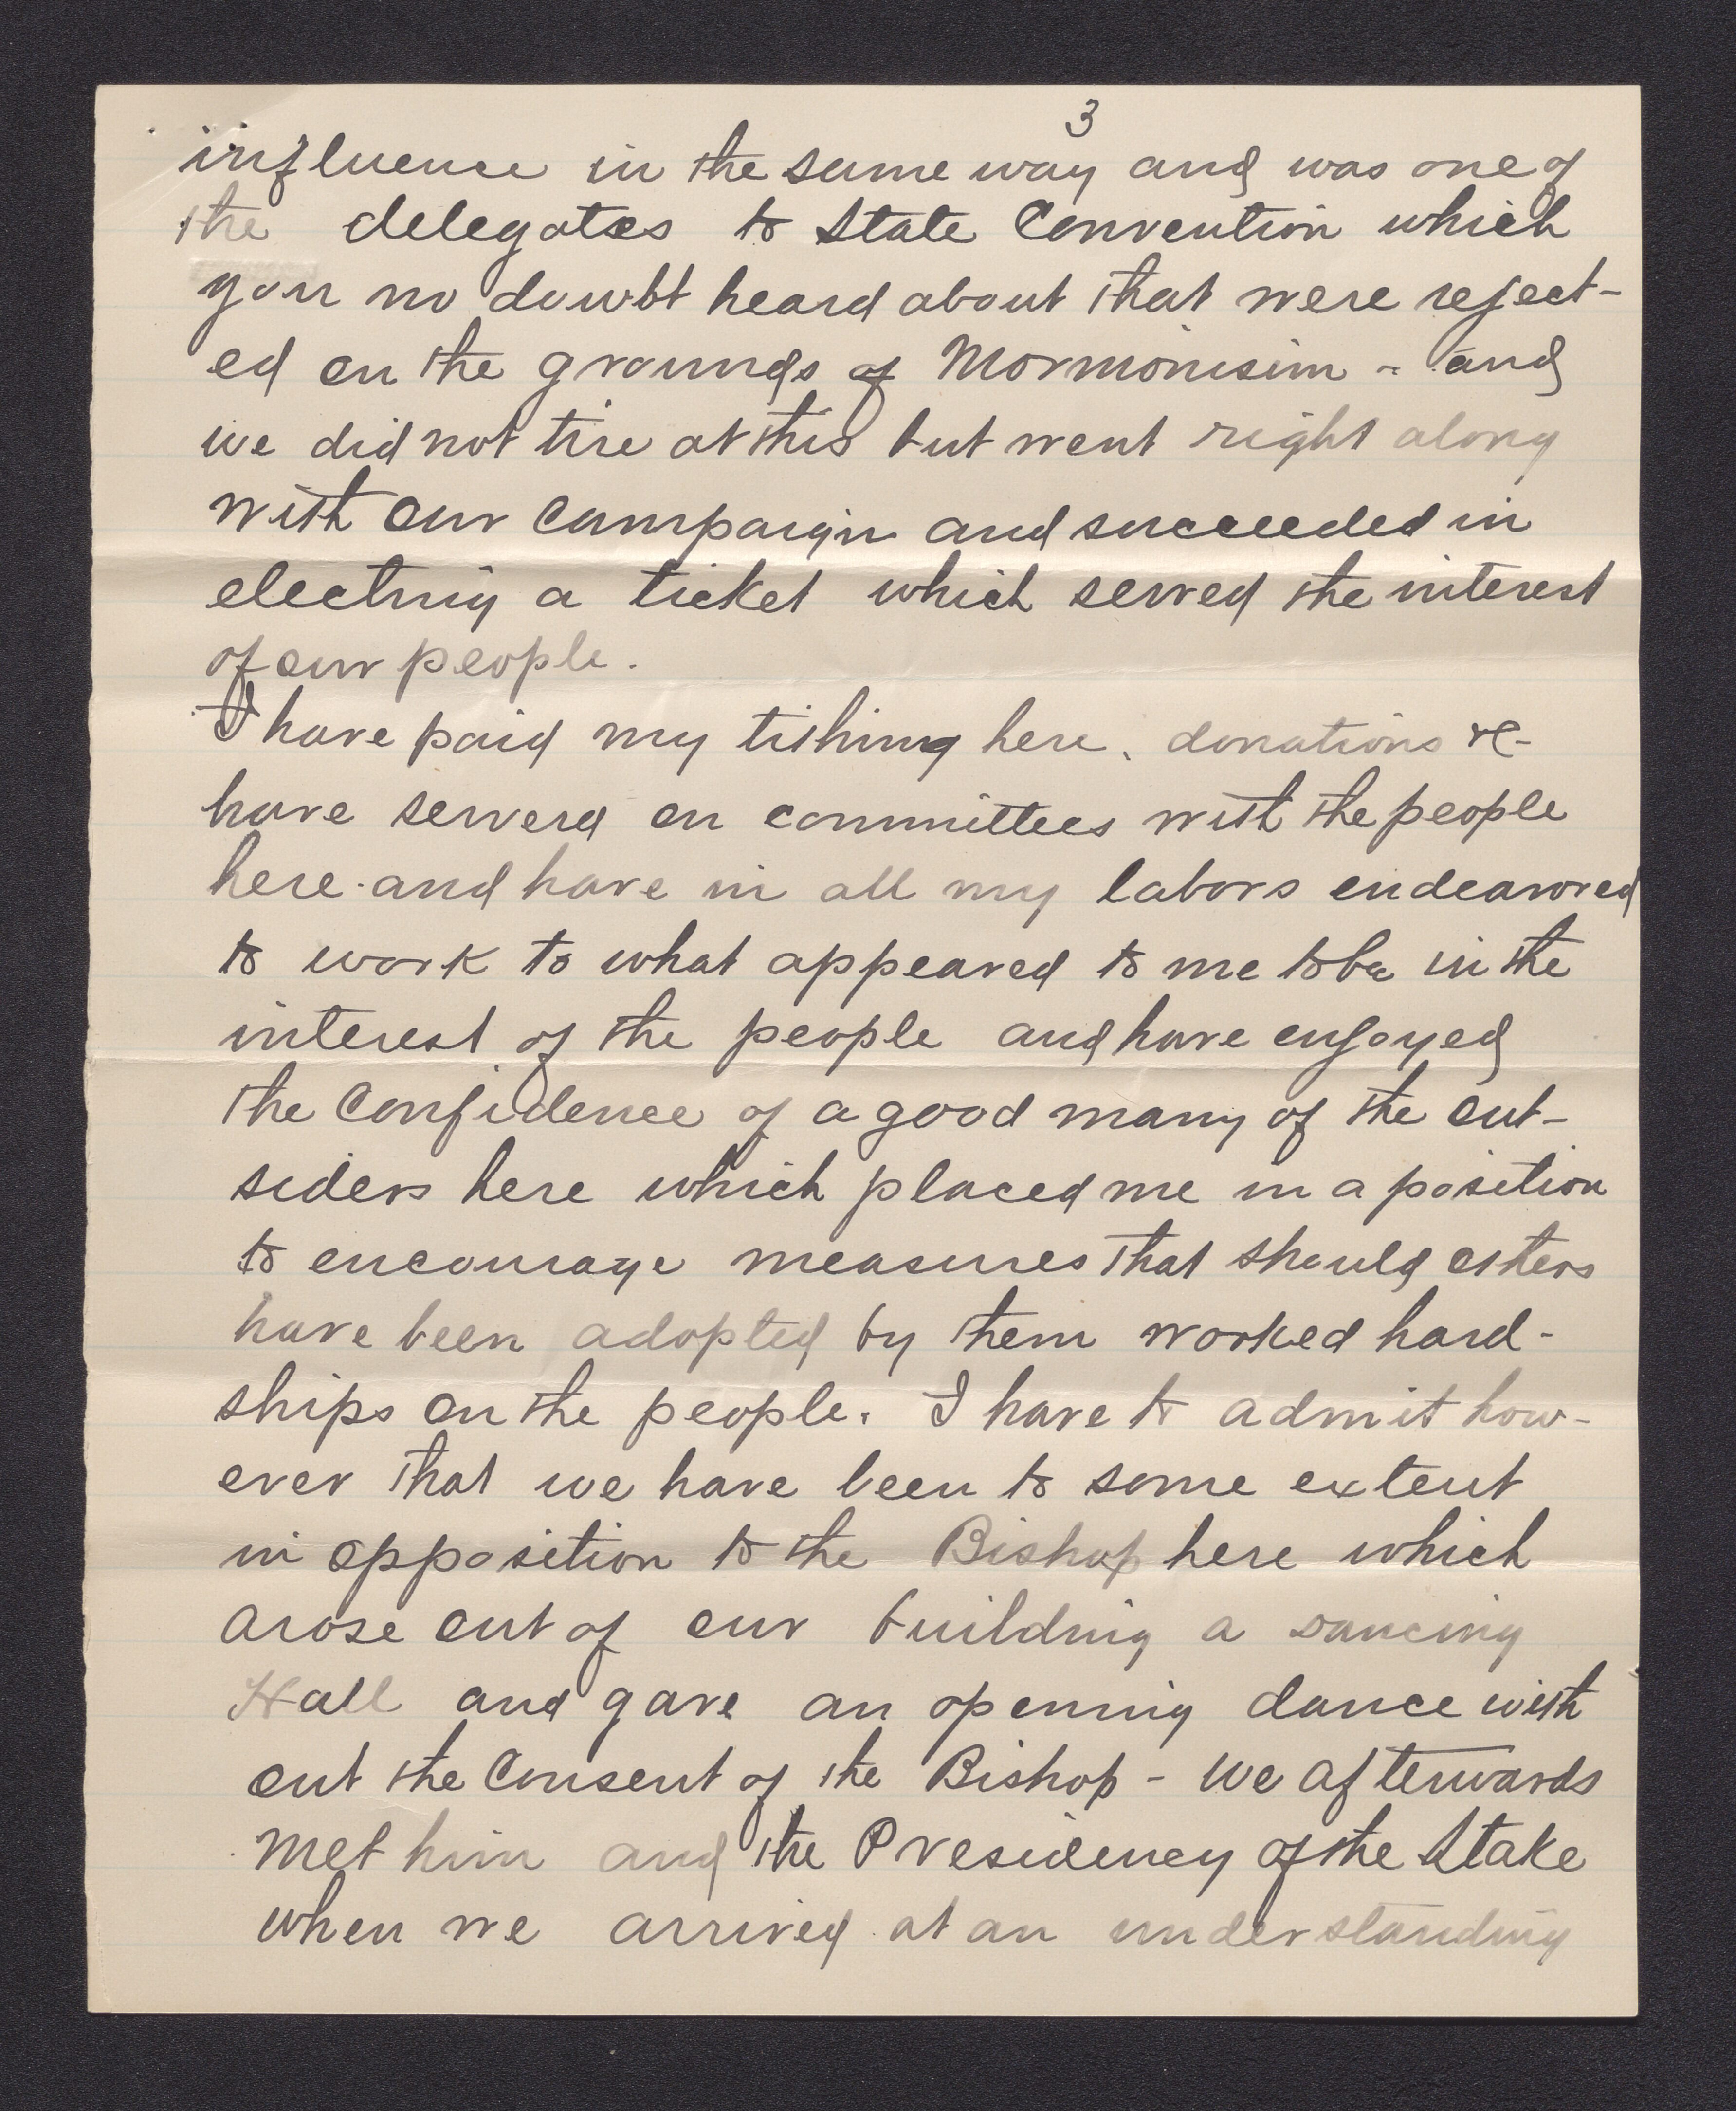 3
influence in the same way and was one of
the delegates to State Convention which
you no doubt heard about that were reject-
ed on the grounds of Mormonisim - and
we did not tire at this but went right along
with our campaign and succeeded in
electing a ticket which served the interest
of our people.
I have paid my tithing here, donations &c-
have serverd on committees with the people
here and have in all my labors endeavored
to work to what appeared to me to be in the
interest of the people and have enjoyed
the Confidence of a good many of the out-
siders here which placed me in a position
to encourage measures that should others
have been adopted by them worked hard-
ships on the people. I have to admit how-
ever that we have been to some extent
in opposition to the Bishop here which
arose out of our building a dancing
Hall and gave an opening dance with
out the Consent of the Bishop - We afterwards
met him and the Presidency of the Stake
when we arrived at an understanding